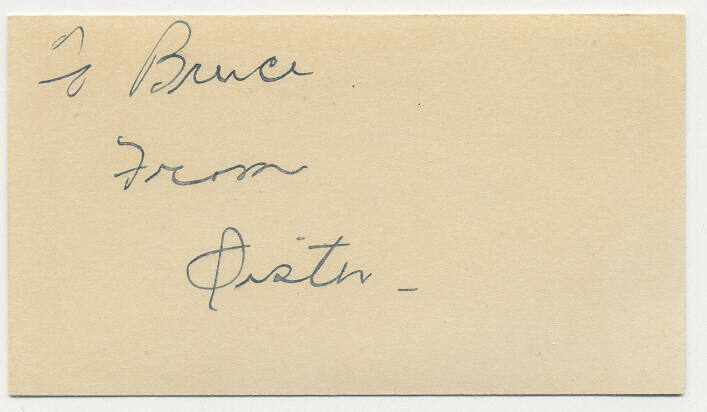 To Bruce
From
Sister -